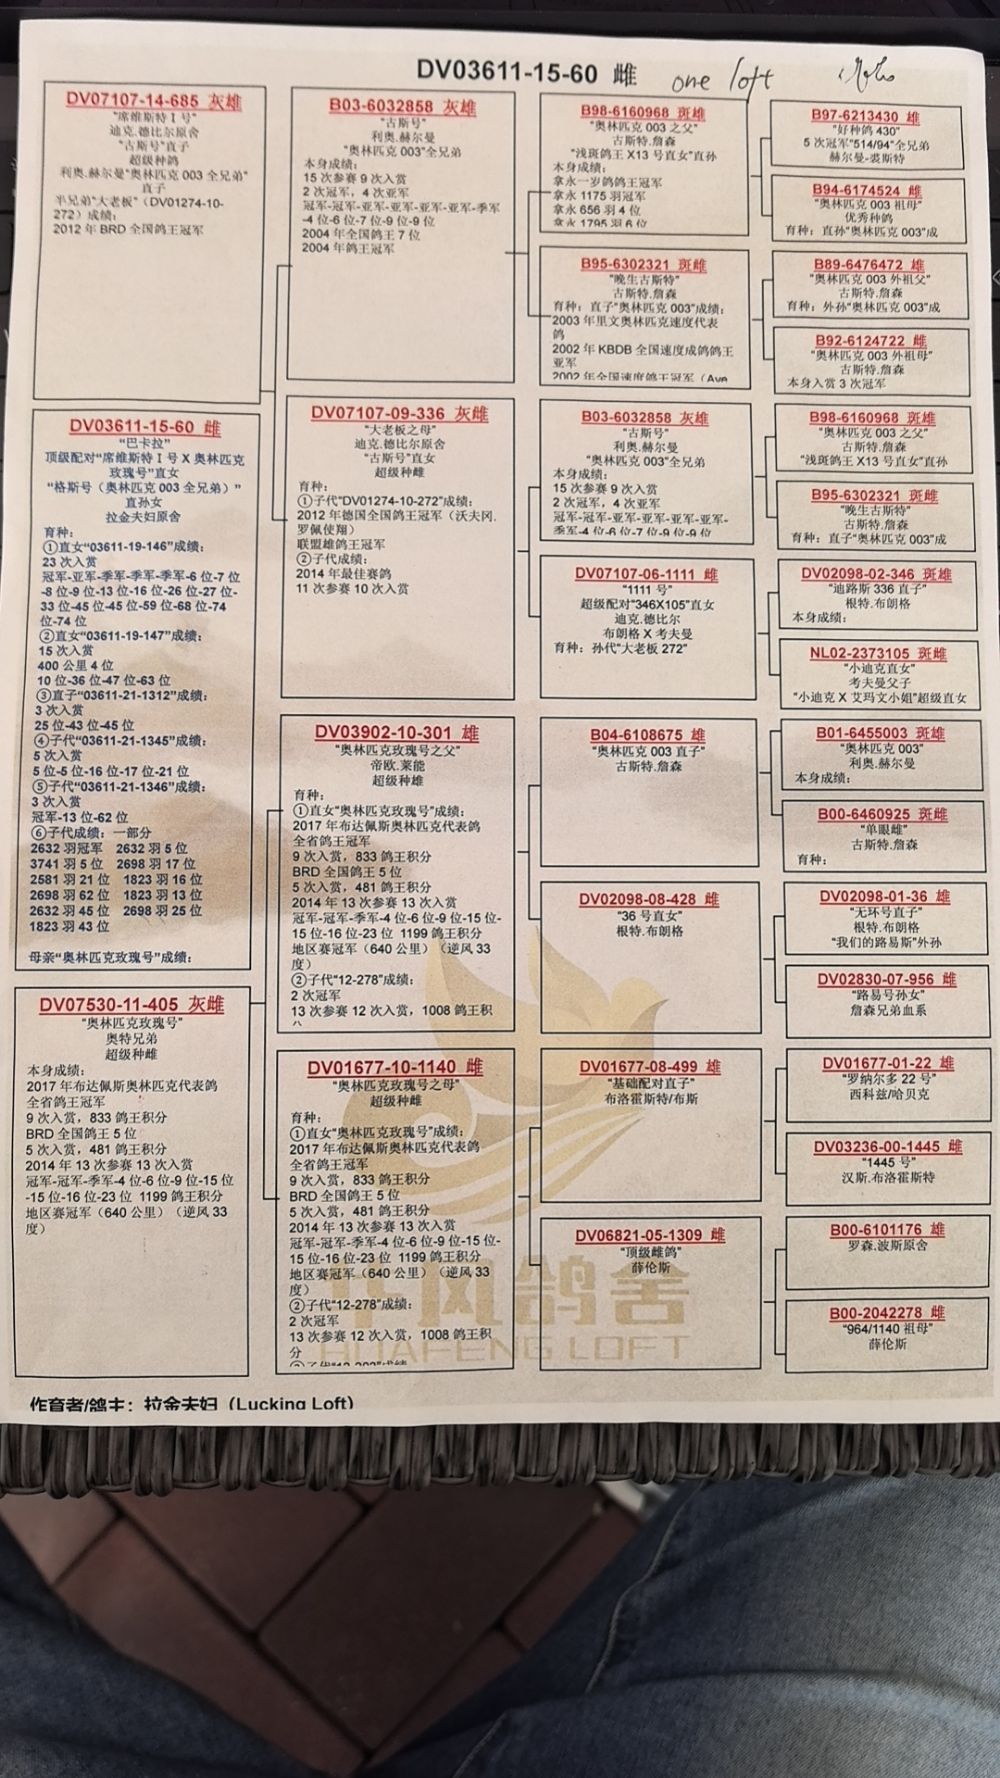 DV03611-15-60 雌 one loft
DV07107-14-685 灰雄
"席维斯特 I 号"
迪克.德比尔原舍
"古斯号"直子
超级种鸽
利奥.赫尔曼"奥林匹克 003 全兄弟"
直子
半兄弟"大老板"（DV01274-10-
272）成绩：
2012 年 BRD 全国鸽王冠军
DV03611-15-60 雌
"巴卡拉"
顶级配对"席维斯特 I 号 X 奥林匹克
玫瑰号"直女
"格斯号（奥林匹克 003 全兄弟）"
直孙女
拉金夫妇原舍
育种：
①直女"03611-19-146"成绩：
23 次入赏
冠军-亚军-季军-季军-季军-6 位-7 位
-8 位-9 位-13 位-16 位-26 位-27 位-
33 位-45 位-45 位-59 位-68 位-74
位-74 位
②直女"03611-19-147"成绩：
15 次入赏
400 公里 4 位
10 位-36 位-47 位-63 位
③直子"03611-21-1312"成绩：
3 次入赏
25 位-43 位-45 位
④子代"03611-21-1345"成绩：
5 次入赏
5 位-5 位-16 位-17 位-21 位
⑤子代"03611-21-1346"成绩：
3 次入赏
冠军-13 位-62 位
⑥子代成绩：一部分
2632 羽冠军 2632 羽 5 位
3741 羽 5 位 2698 羽 17 位
2581 羽 21 位 1823 羽 16 位
2698 羽 62 位 1823 羽 13 位
2632 羽 45 位 2698 羽 25 位
1823 羽 43 位
母亲"奥林匹克玫瑰号"成绩：
DV07530-11-405 灰雌
"奥林匹克玫瑰号"
奥特兄弟
超级种雌
本身成绩：
2017 年布达佩斯奥林匹克代表鸽
全省鸽王冠军
9 次入赏，833 鸽王积分
BRD 全国鸽王 5 位
5 次入赏，481 鸽王积分
2014 年 13 次参赛 13 次入赏
冠军-冠军-季军-4 位-6 位-9 位-15 位
-15 位-16 位-23 位 1199 鸽王积分
地区赛冠军（640 公里）（逆风 33
度）
B03-6032858 灰雄
"古斯号"
利奥.赫尔曼
"奥林匹克 003"全兄弟
本身成绩：
15 次参赛 9 次入赏
2 次冠军，4 次亚军
冠军-冠军-亚军-亚军-亚军-亚军-季军
-4 位-6 位-7 位-9 位-9 位
2004 年全国鸽王 7 位
2004 年鸽王冠军
DV07107-09-336 灰雌
"大老板之母"
迪克.德比尔原舍
"古斯号"直女
超级种雌
育种：
①子代"DV01274-10-272"成绩：
2012 年德国全国鸽王冠军（沃夫冈.
罗佩使翔）
联盟雄鸽王冠军
②子代成绩：
2014 年最佳赛鸽
11 次参赛 10 次入赏
DV03902-10-301 雄
"奥林匹克玫瑰号之父"
帝欧.莱能
超级种雄
育种：
①直女"奥林匹克玫瑰号"成绩：
2017 年布达佩斯奥林匹克代表鸽
全省鸽王冠军
9 次入赏，833 鸽王积分
BRD 全国鸽王 5 位
5 次入赏，481 鸽王积分
2014 年 13 次参赛 13 次入赏
冠军-冠军-季军-4 位-6 位-9 位-15 位-
15 位-16 位-23 位 1199 鸽王积分
地区赛冠军（640 公里）（逆风 33
度）
②子代"12-278"成绩：
2 次冠军
13 次参赛 12 次入赏，1008 鸽王积
DV01677-10-1140 雌
"奥林匹克玫瑰号之母"
超级种雌
育种：
①直女"奥林匹克玫瑰号"成绩：
2017 年布达佩斯奥林匹克代表鸽
全省鸽王冠军
9 次入赏，833 鸽王积分
BRD 全国鸽王 5 位
5 次入赏，481 鸽王积分
2014 年 13 次参赛 13 次入赏
冠军-冠军-季军-4 位-6 位-9 位-15 位-
15 位-16 位-23 位 1199 鸽王积分
地区赛冠军（640 公里）（逆风 33
度）
②子代"12-278"成绩：
2 次冠军
13 次参赛 12 次入赏，1008 鸽王积
分
B98-6160968 斑雄
"奥林匹克 003 之父"
古斯特.詹森
"浅斑鸽王 X13 号直女"直孙
本身成绩：
拿永一岁鸽鸽王冠军
拿永 1175 羽冠军
拿永 656 羽 4 位
拿永 1795 羽 6 位
B95-6302321 斑雌
"晚生古斯特"
古斯特.詹森
育种：直子"奥林匹克 003"成绩：
2003 年里文奥林匹克速度代表
鸽
2002 年 KBDB 全国速度成鸽鸽王
亚军
2002 年全国速度鸽王冠军（Ave
B03-6032858 灰雄
"古斯号"
利奥.赫尔曼
"奥林匹克 003"全兄弟
本身成绩：
15 次参赛 9 次入赏
2 次冠军，4 次亚军
冠军-冠军-亚军-亚军-亚军-亚军-
季军-4 位-6 位-7 位-9 位-9 位
DV07107-06-1111 雌
"1111 号"
超级配对"346X105"直女
迪克.德比尔
布朗格 X 考夫曼
育种：孙代"大老板 272"
B04-6108675 雄
"奥林匹克 003 直子"
古斯特.詹森
DV02098-08-428 雌
"36 号直女"
根特.布朗格
DV01677-08-499 雄
"基础配对直子"
布洛霍斯特/布斯
DV06821-05-1309 雌
"顶级雌鸽"
薛伦斯
B97-6213430 雄
"好种鸽 430"
5 次冠军"514/94"全兄弟
赫尔曼-裘斯特
B94-6174524 雌
"奥林匹克 003 祖母"
优秀种鸽
育种：直孙"奥林匹克 003"成
B89-6476472 雄
"奥林匹克 003 外祖父"
古斯特.詹森
育种：外孙"奥林匹克 003"成
B92-6124722 雌
"奥林匹克 003 外祖母"
古斯特.詹森
本身入赏 3 次冠军
B98-6160968 斑雄
"奥林匹克 003 之父"
古斯特.詹森
"浅斑鸽王 X13 号直女"直孙
B95-6302321 斑雌
"晚生古斯特"
古斯特.詹森
育种：直子"奥林匹克 003"成
DV02098-02-346 斑雄
"迪路斯 336 直子"
根特.布朗格
本身成绩：
NL02-2373105 斑雌
"小迪克直女"
考夫曼父子
"小迪克 X 艾玛文小姐"超级直女
B01-6455003 斑雄
"奥林匹克 003"
利奥.赫尔曼
本身成绩：
B00-6460925 斑雌
"单眼雌"
古斯特.詹森
育种：
DV02098-01-36 雄
"无环号直子"
根特.布朗格
"我们的路易斯"外孙
DV02830-07-956 雌
"路易号孙女"
詹森兄弟血系
DV01677-01-22 雄
"罗纳尔多 22 号"
西科兹/哈贝克
DV03236-00-1445 雌
"1445 号"
汉斯.布洛霍斯特
B00-6101176 雄
罗森.波斯原舍
B00-2042278 雌
"964/1140 祖母"
薛伦斯
风鸽舍
HUAFENG LOFT
作育者/鸽主：拉金夫妇（Lucking Loft）